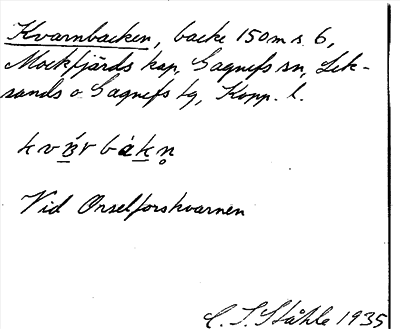 Kvarnbacken, backe 150 m s. 6,
Mockfjärds kap, Gagnefs sn, Lek-
sands o. Gagnefs tg, Kopp. l.
Vid Onselforskvarnen
C. I. Ståhle 1935